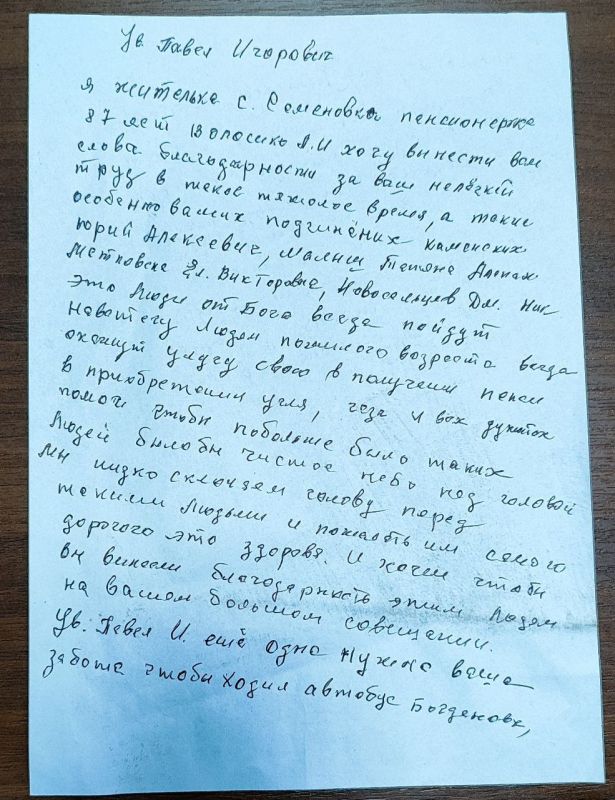 Ув. Павел Игорович
Я жителька с. Семеновка пенсионерка
87 лет Волошико Л.И хочу вынести вам
слова благодарности за ваш нелёгкий
труд в такое тяжолое время, а также
особенно ваших подчинёных Каменских
Юрий Алексеевич, Малыш Татяна
Викторовна, Новосельцев Дм. Ник
это Люди от Бога всегда пойдут
навстречу Людям пожилого возроста всегда
окажут услугу свою в получени пенси
в приобретении угля, газа и вах
помочи чтобы побольше было таких
Людей былобы чистое небо под головой
Мы низко склоняем голову перед
такими Людьми и пожелать им самого
дорогого это здоровя. И хочем чтобы
вы винесли благодарность этим Людям
на вашом большом совещании.
Ув. Павел И. ещё одна нужна ваша
забота чтобы ходил автобус Богдановк,